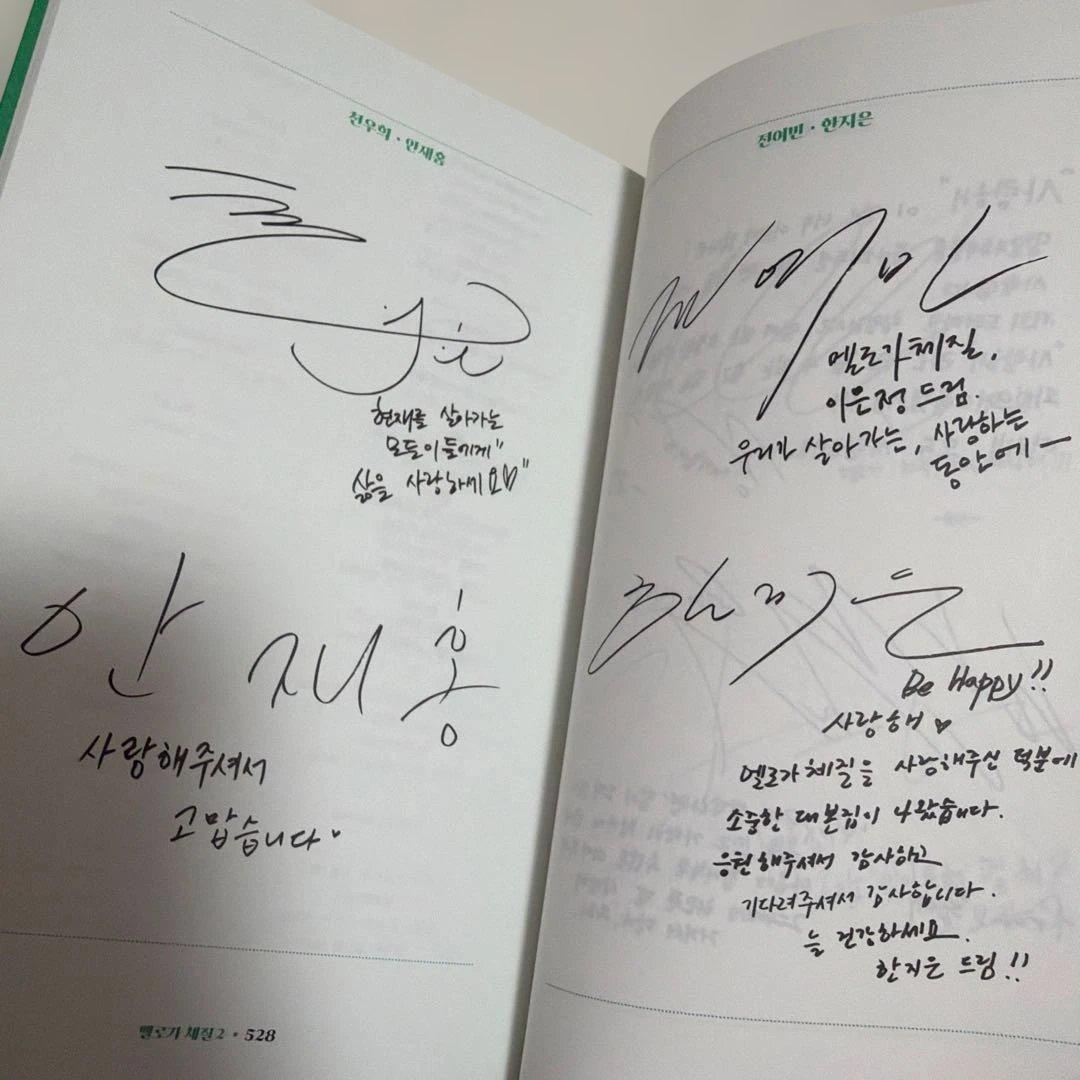 천우희 · 안재홍
현재를 살아가는
모든이들에게"
삶을 사랑하세요♡"
안재홍
사랑해주셔서
고맙습니다♥
멜로가 체질 2 • 528
전여빈 · 한지은
전여빈
멜로가체질.
이은정 드림.
우리가 살아가는, 사랑하는
동안에ㅡ
한지은
Be Happy!!
사랑해♥
멜로가 체질을 사랑해주신 덕분에
소중한 대본집이 나왔습니다.
응원해주셔서 감사하고
기다려주셔서 감사합니다.
늘 건강하세요.
한지은 드림!!